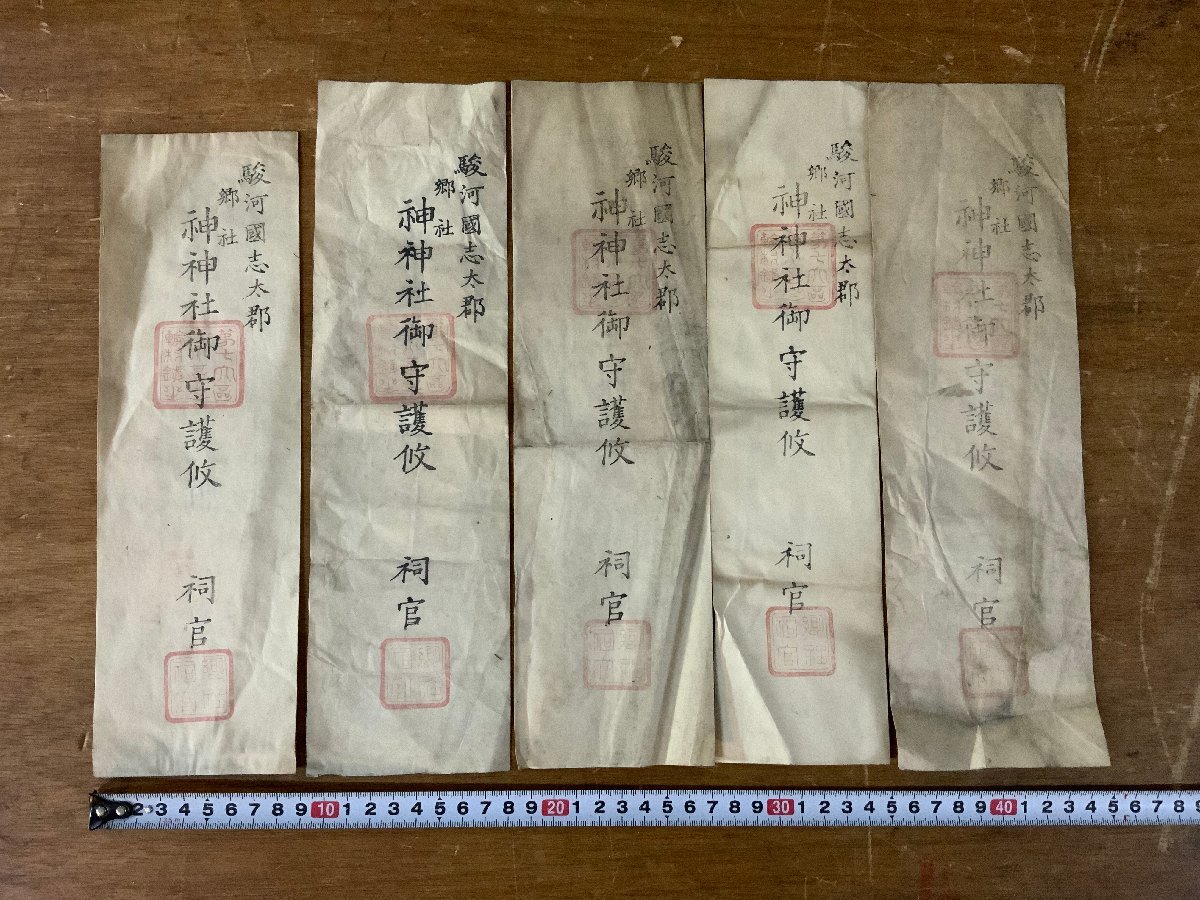 駿河國志太郡
郷社
神神社御守護攸
祠官
第七大區
郷社祠官
駿河國志太郡
郷社
神神社御守護攸
祠官
駿河國志太郡
郷社
神神社御守護攸
祠官
駿河國志太郡
郷社
神神社御守護攸
祠官
第七大區
郷社祠官
駿河國志太郡
郷社
神神社御守護攸
祠官
2 3 4 5 6 7 8 9 10 1 2 3 4 5 6 7 8 9 20 1 2 3 4 5 6 7 8 9 30 1 2 3 4 5 6 7 8 9 40 1 2 3 4 5 6 7 8 9